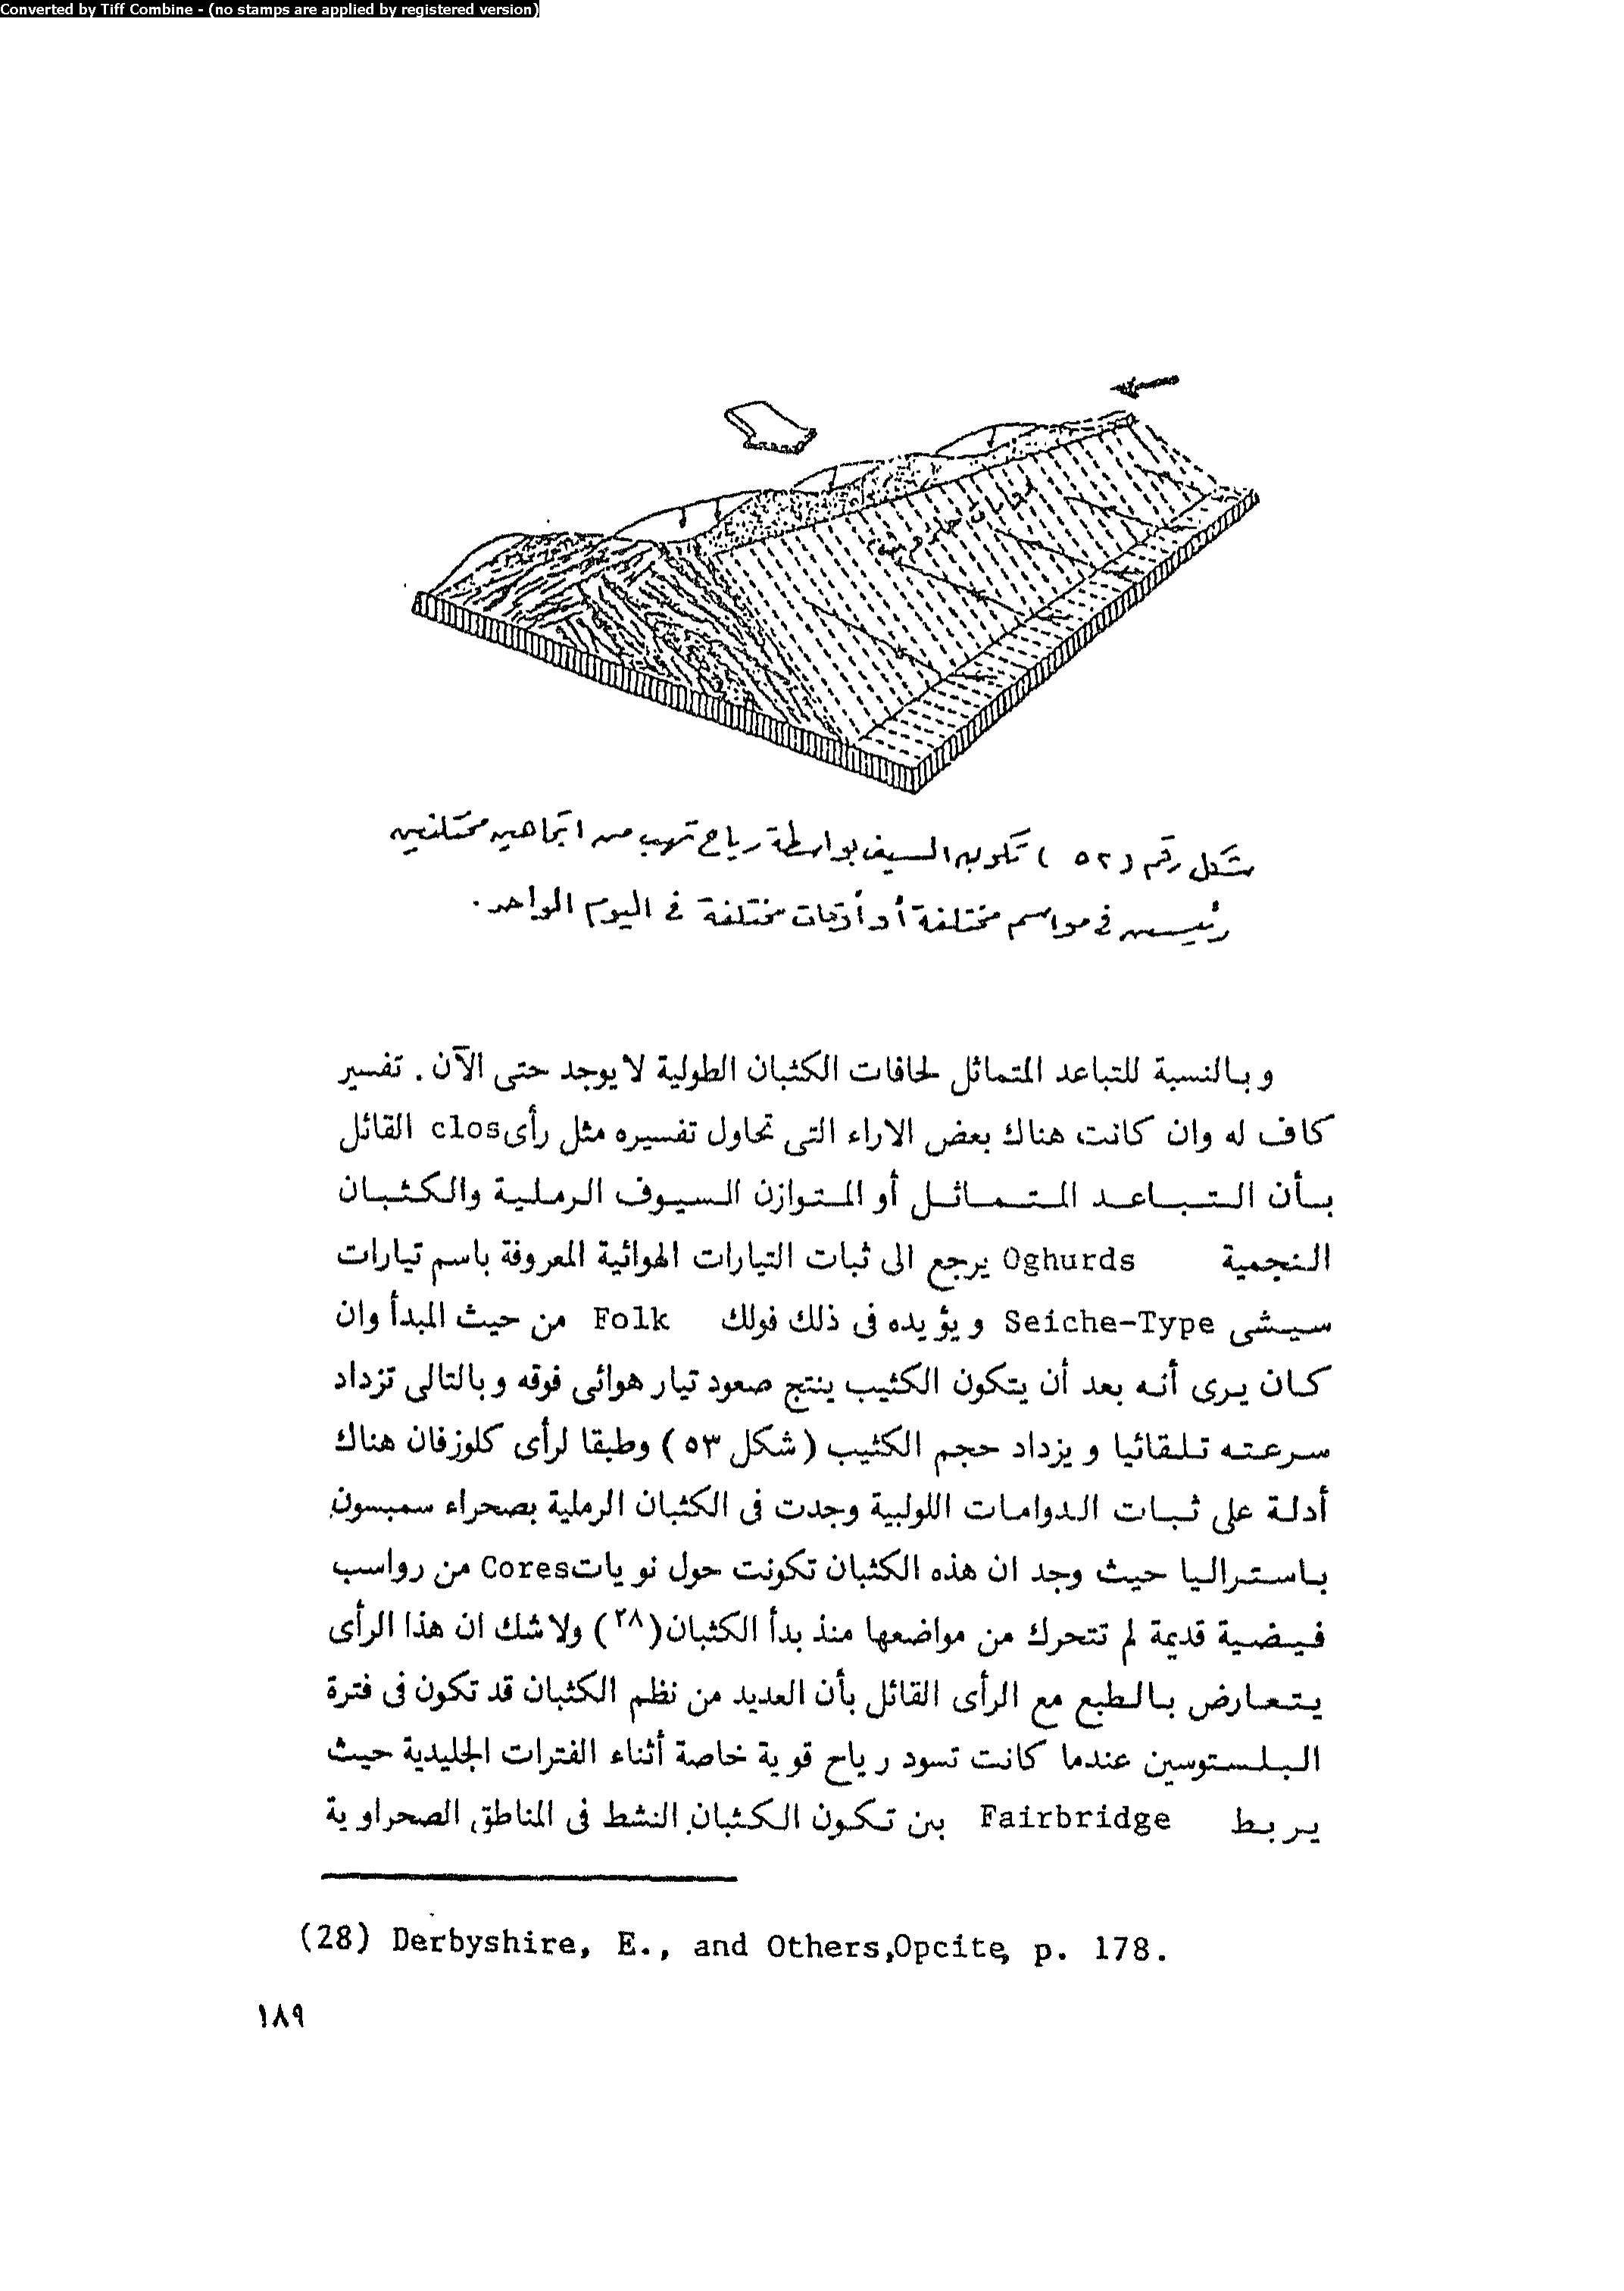 Converted by Tiff Combine - (no stamps are applied by registered version)
شكل رقم (٥٢) تكوين السيف بواسطة رياح تهب من اتجاهين مختلفين
رئيسين في مواسم مختلفة أو أوقات مختلفة في اليوم الواحد.
وبالنسبة للتباعد المتماثل لحافات الكثبان الطولية لا يوجد حتى الآن. تفسير
كاف له وان كانت هناك بعض الاراء التى تحاول تفسيره مثل رأى clos القائل
بأن التباعد المتماثل أو المتوازن السيوف الرملية والكثبان
النجمية Oghurds يرجع الى ثبات التيارات الهوائية المعروفة باسم تيارات
سيشى Seiche-Type ويؤيده فى ذلك فولك Folk من حيث المبدأ وان
كان يرى أنه بعد أن يتكون الكثيب ينتج صعود تيار هوائى فوقه وبالتالى تزداد
سرعته تلقائيا ويزداد حجم الكثيب (شكل ٥٣) وطبقا لرأى كلوزفان هناك
أدلة على ثبات الدوامات اللولبية وجدت فى الكثبان الرملية بصحراء سمبسون
باستراليا حيث وجد ان هذه الكثبان تكونت حول نويات Cores من رواسب
فيضية قديمة لم تتحرك من مواضعها منذ بدأ الكثبان(٢٨) ولاشك ان هذا الرأى
يتعارض بالطبع مع الرأى القائل بأن العديد من نظم الكثبان قد تكون فى فترة
البلستوسين عندما كانت تسود رياح قوية خاصة أثناء الفترات الجليدية حيث
يربط Fairbridge بين تكون الكثبان النشط فى المناطق الصحراوية
(28) Derbyshire, E., and Others,Opcite, p. 178.
١٨٩